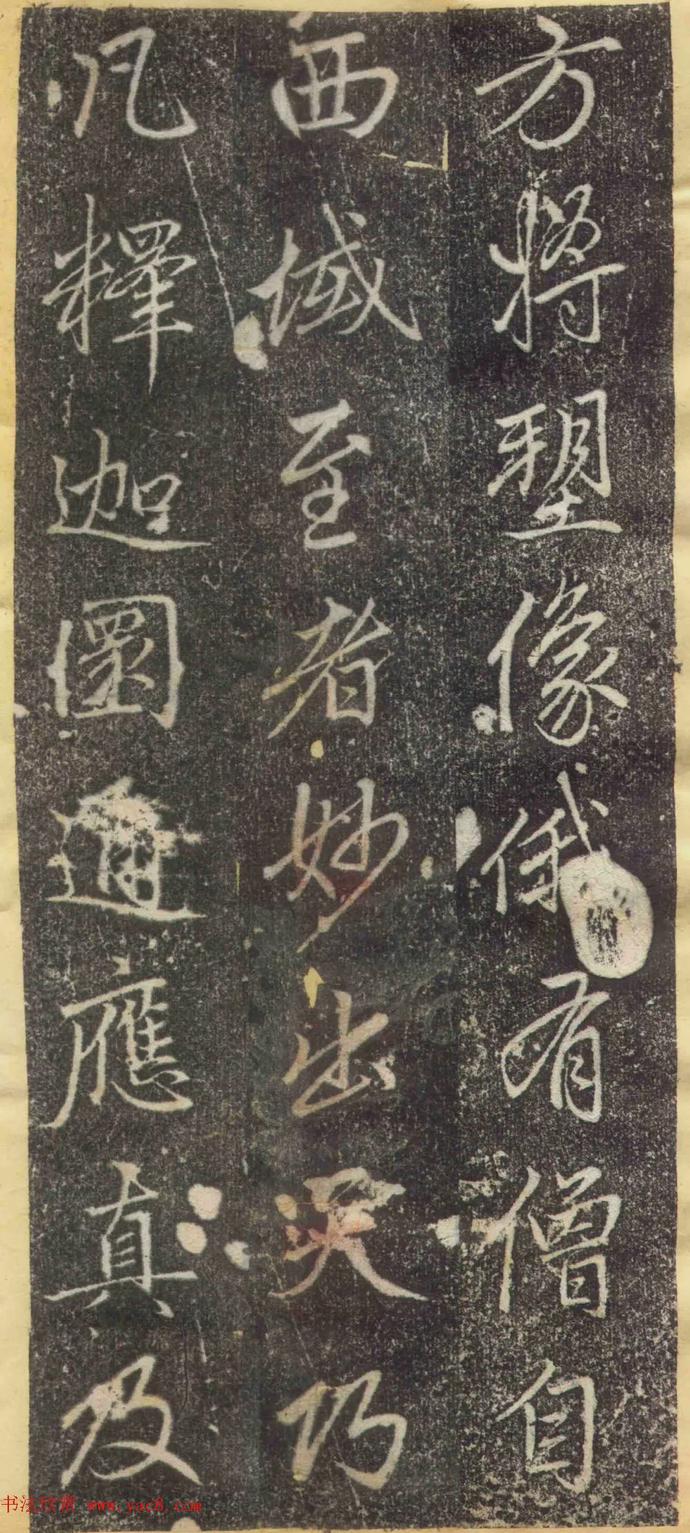 方將塑像俄有僧自
西域至者妙出天巧
凡釋迦圓通應真及
书法欣赏 www.yac8.com